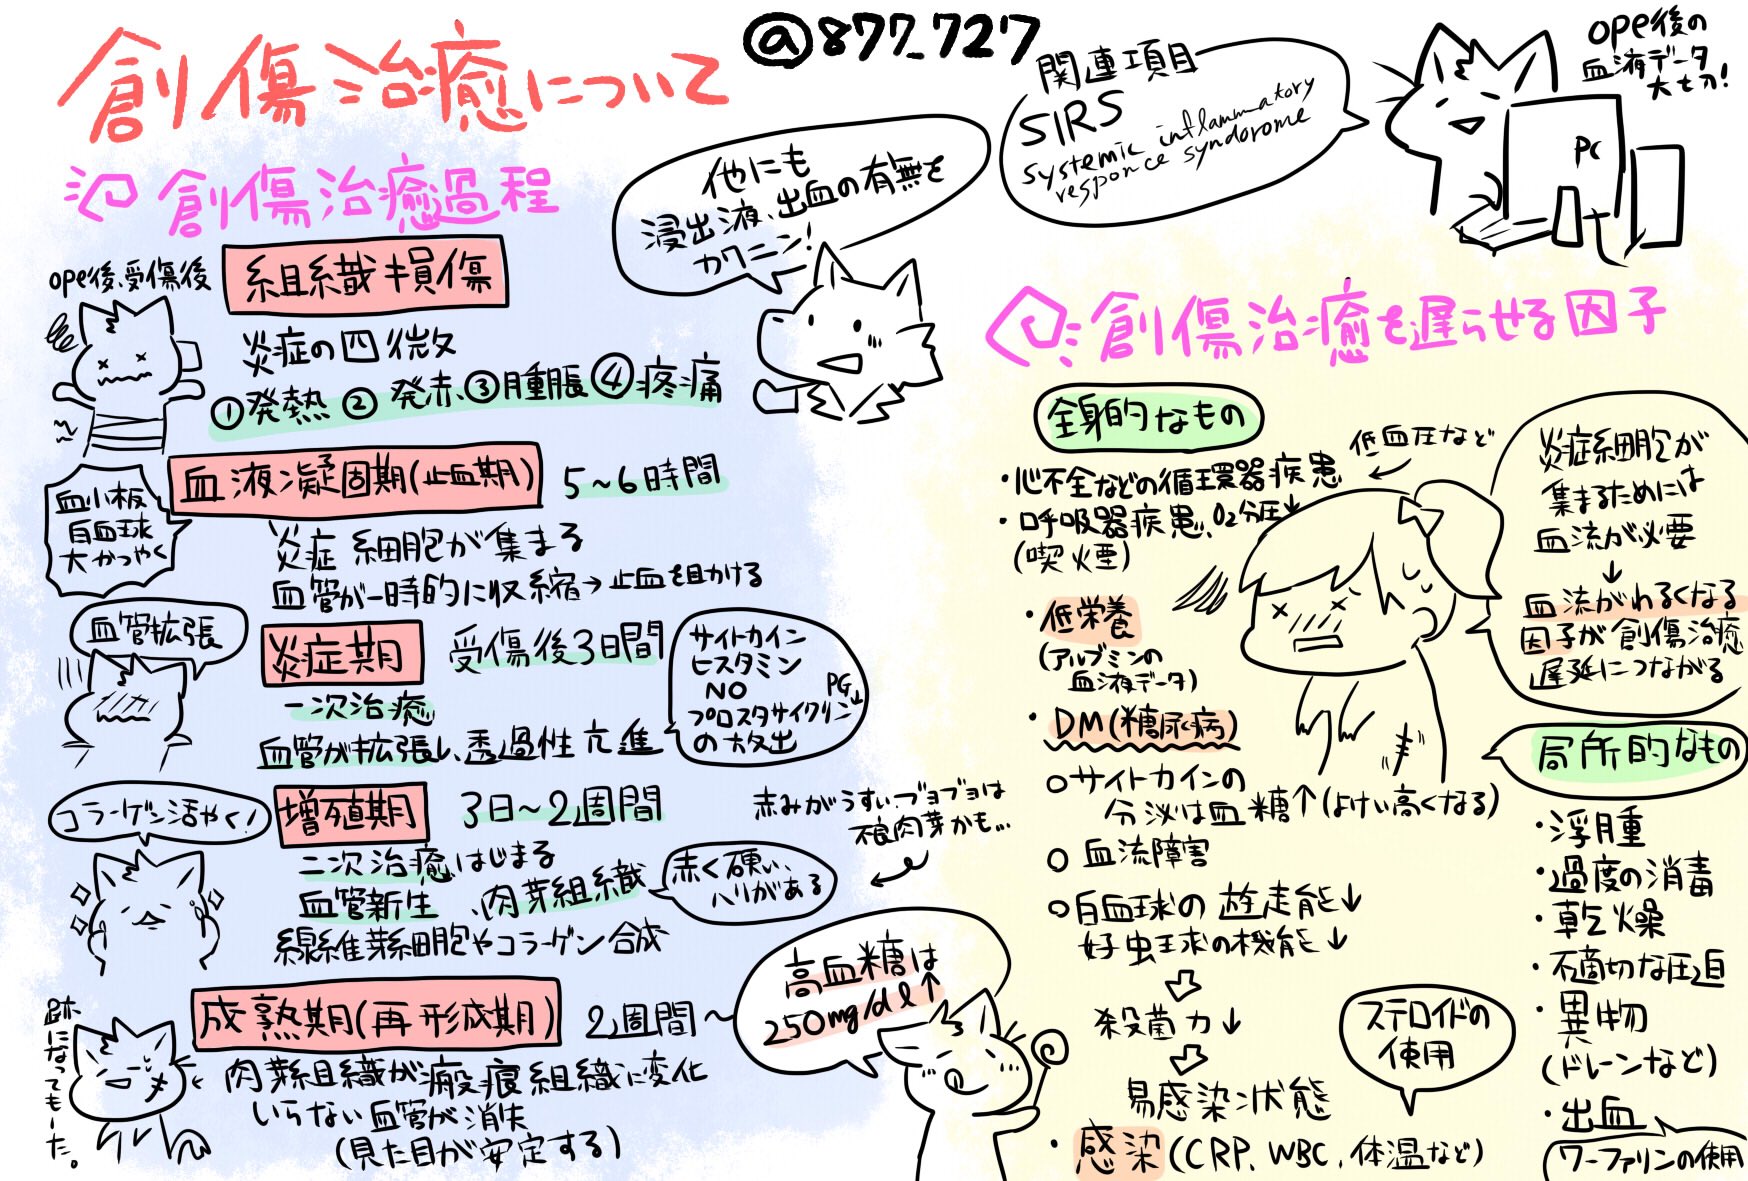 創傷治癒について
@877_727
関連項目
SIRS
systemic inflammatory
responce syndorome
ope後の
血液データ
大切!
PC
創傷治癒過程
他にも
浸出液、出血の有無を
カクニン!
ope後、受傷後
組織損傷
炎症の四徴
①発熱 ② 発赤、③腫脹 ④疼痛
血液凝固期(止血期) 5~6時間
血小板
白血球
大かつやく
炎症細胞が集まる
血管が一時的に収縮→止血を助ける
血管拡張
炎症期 受傷後3日間
一次治癒
血管が拡張し、透過性亢進
サイトカイン
ヒスタミン
NO PG↓
プロスタサイクリン
の放出
コラーゲン活やく!
増殖期 3日~2週間
二次治癒はじまる
血管新生、肉芽組織
線維芽細胞やコラーゲン合成
赤く硬い、
ハリがある
赤みがうすい、ブヨブヨは
不良肉芽かも…
成熟期(再形成期) 2週間~
肉芽組織が瘢痕組織に変化
いらない血管が消失
(見た目が安定する)
跡になってもーた。
高血糖は
250mg/dl↑
創傷治癒を遅らせる因子
全身的なもの
低血圧など
・心不全などの循環器疾患
・呼吸器疾患、O2分圧↓
(喫煙)
・低栄養
(アルブミンの
血液データ)
・DM(糖尿病)
○サイトカインの
分泌は血糖↑(よけい高くなる)
○血流障害
○白血球の遊走能↓
好中球の機能↓
⇩
殺菌力↓
⇩
易感染状態
・感染(CRP、WBC、体温など)
ステロイドの
使用
炎症細胞が
集まるためには
血流が必要
↓
血流がわるくなる
因子が創傷治癒
遅延につながる
局所的なもの
・浮腫
・過度の消毒
・乾燥
・不適切な圧迫
・異物
(ドレーンなど)
・出血
(ワーファリンの使用